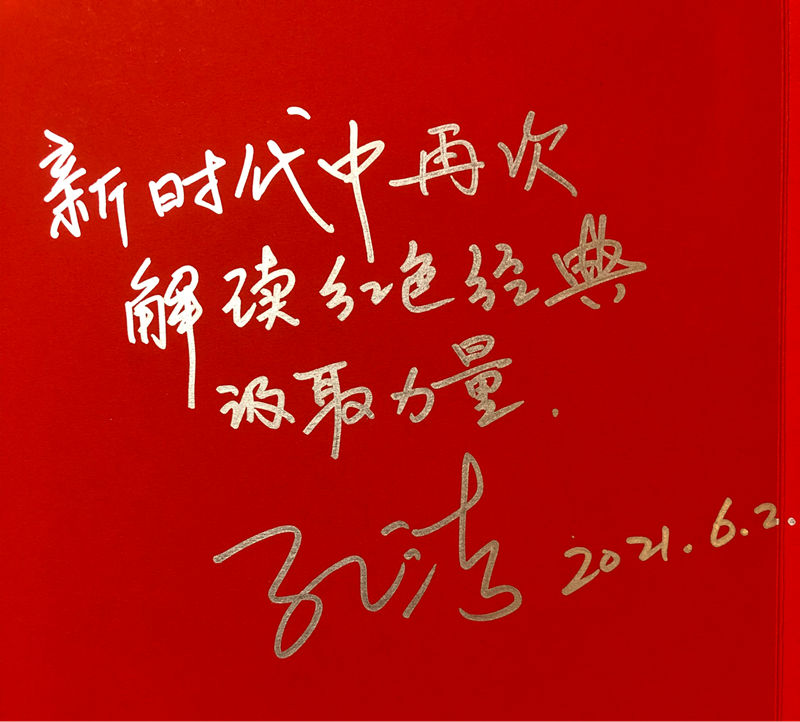 新时代中再次
解读红色经典
汲取力量.
孔 2021.6.2.